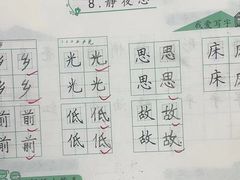 8.静夜思
我爱写字
乡 乡 光 光 思 思 床 床
乡 乡 光 光 思 思 床 床
前 前 低 低 故 故
前 前 低 低 故 故